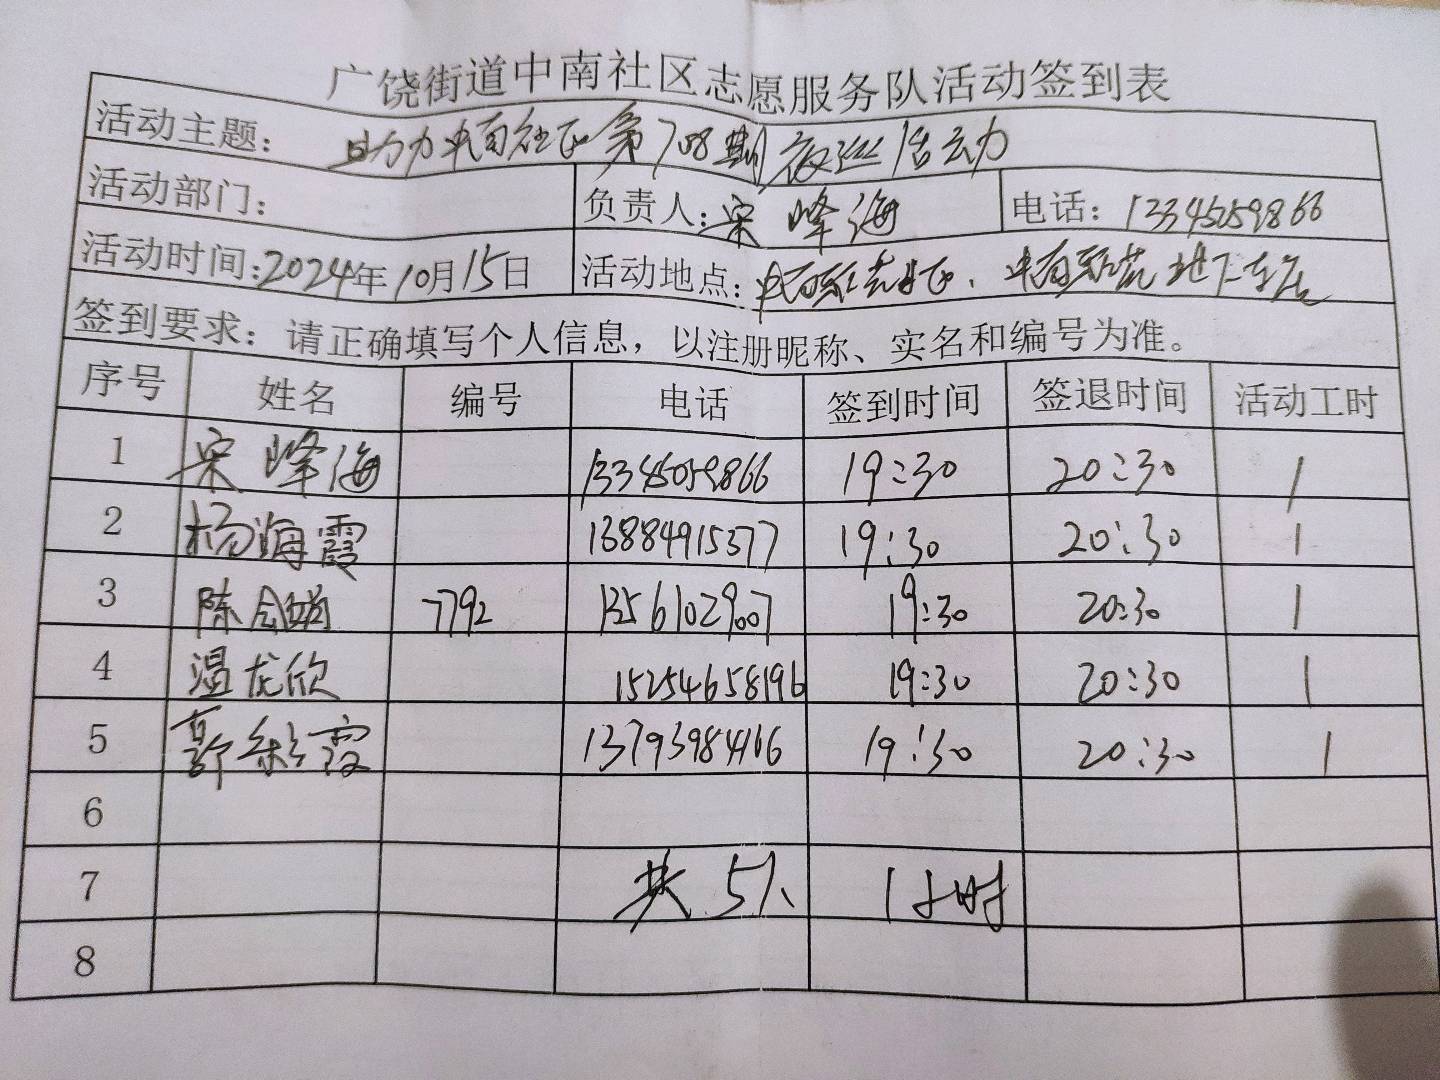 广饶街道中南社区志愿服务队活动签到表
活动主题: 助力中南社区第708期夜巡活动
活动部门: 负责人: 宋峰海 电话: 13345059866
活动时间: 2024年10月15日 活动地点: 中南世纪 、中南 地下车库
签到要求: 请正确填写个人信息，以注册昵称、实名和编号为准。
序号 姓名 编号 电话 签到时间 签退时间 活动工时
1 宋峰海 13345059866 19:30 20:30 1
2 杨海霞 13884915377 19:30 20:30 1
3 陈会娟 7792 13561029007 19:30 20:30 1
4 温龙欣 15254658196 19:30 20:30 1
5 郭彩霞 13793984166 19:30 20:30 1
6
7 共5人 1小时
8